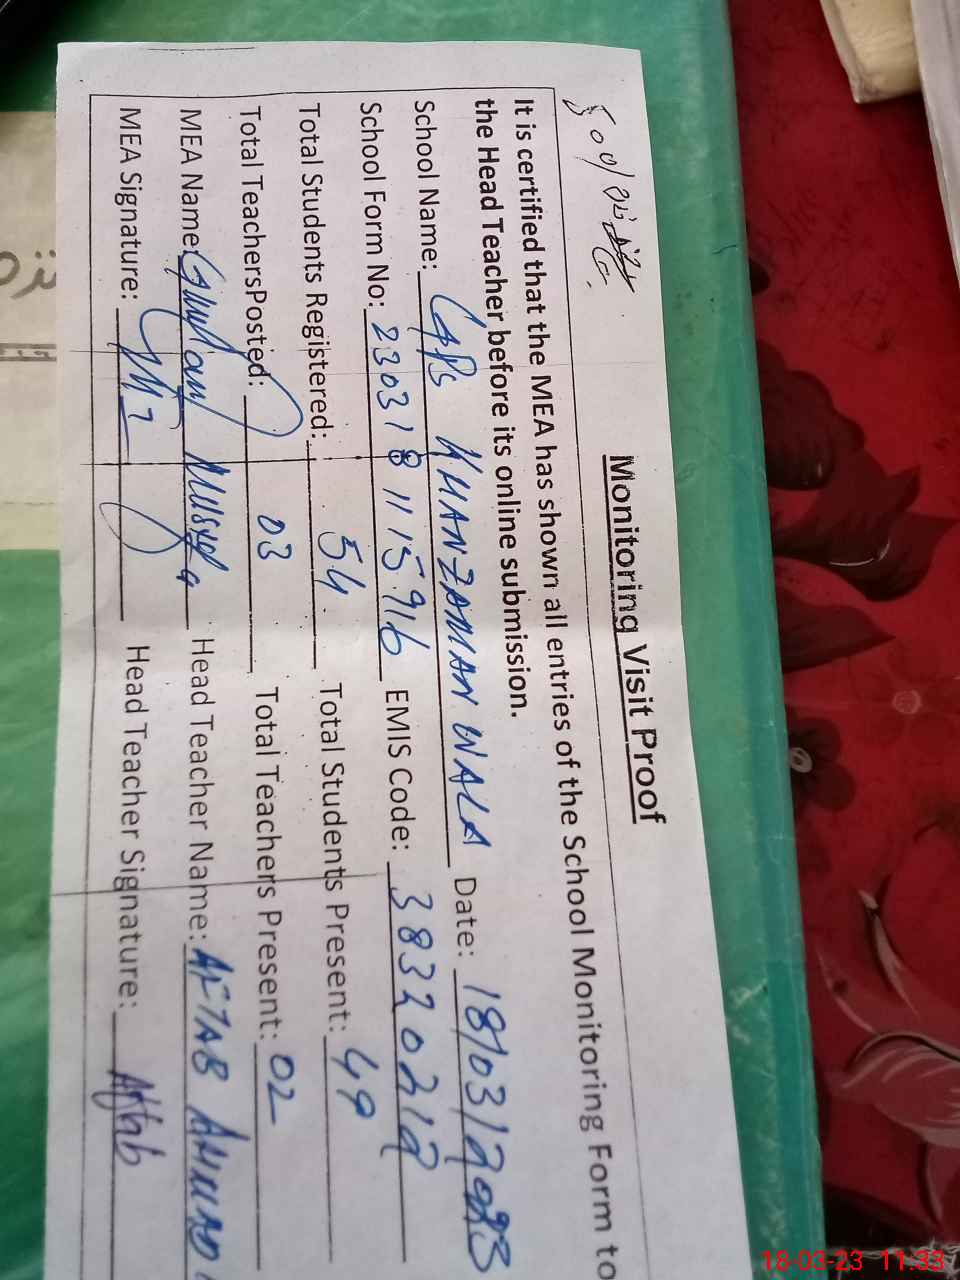 Monitoring Visit Proof
It is certified that the MEA has shown all entries of the School Monitoring Form to
the Head Teacher before its online submission.
School Name: GPS KHANZAMAN WALA Date: 18/03/2023
School Form No: 230318115916 EMIS Code: 38320212
Total Students Registered: 54 Total Students Present: 49
Total TeachersPosted: 03 Total Teachers Present: 02
MEA Name: Ghulam Mustafa Head Teacher Name: AFTAB AHMAD
MEA Signature: Head Teacher Signature: Aftab
18-03-23 11:33